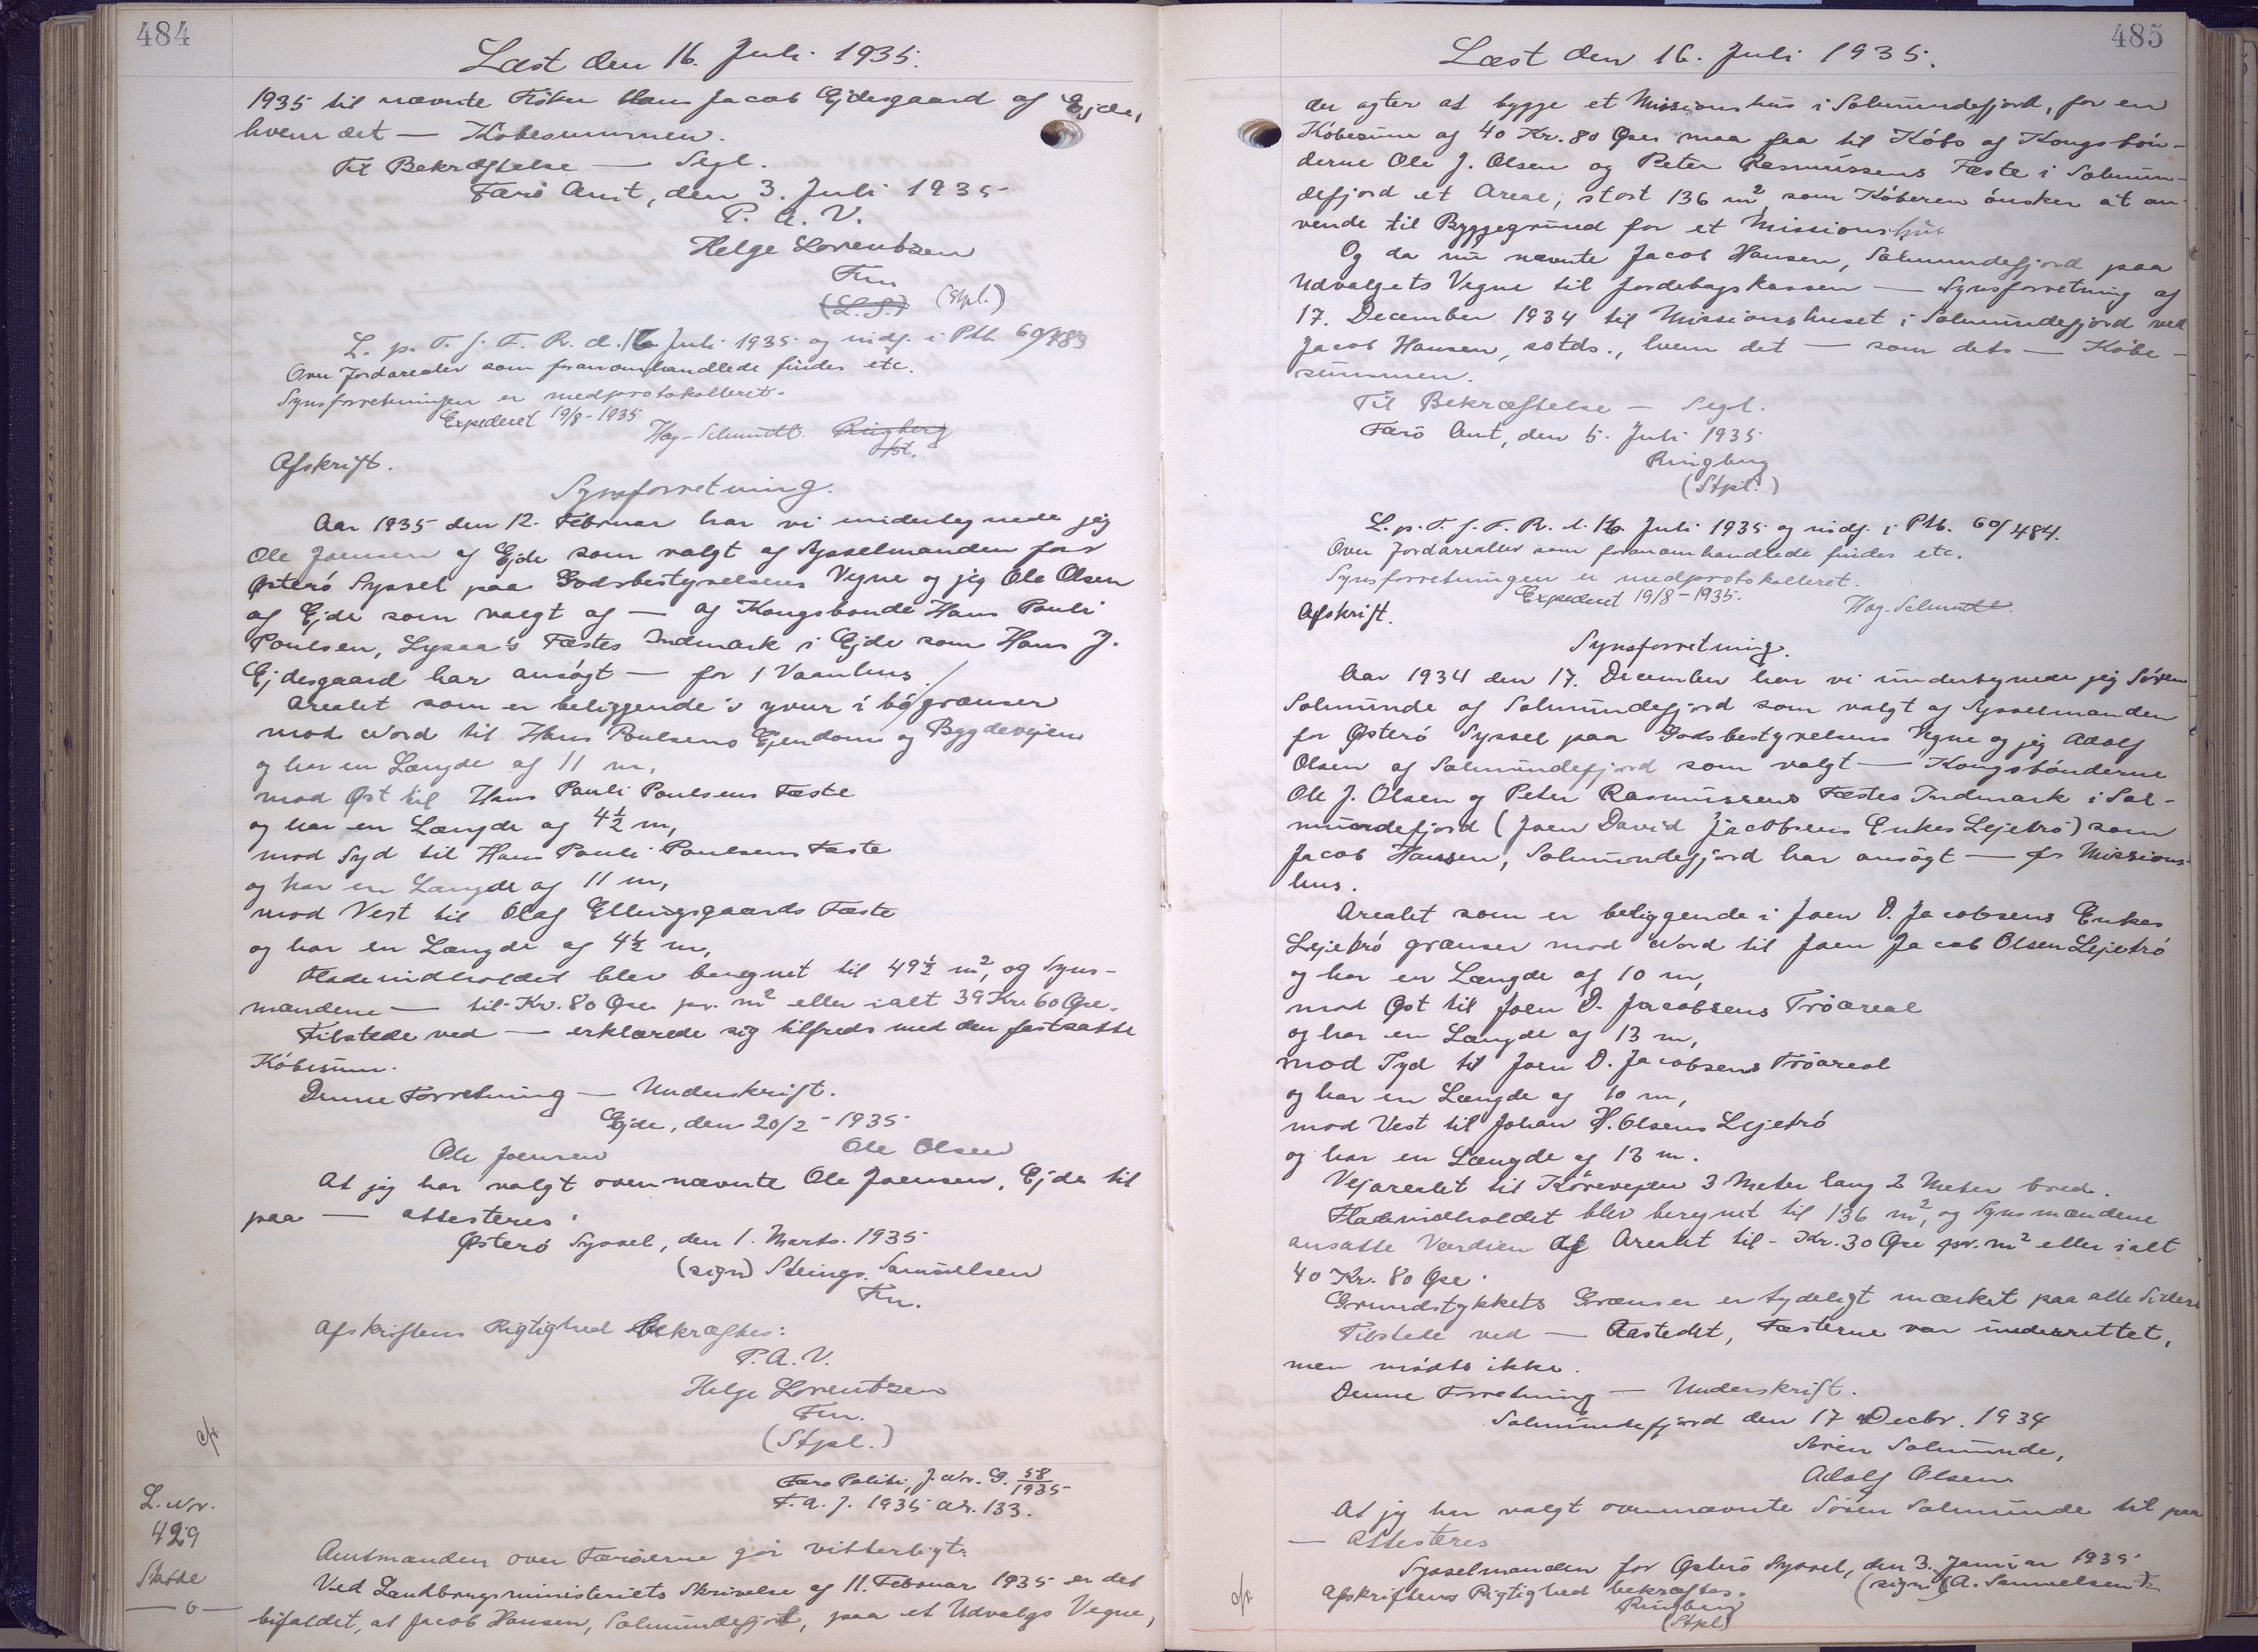 484
Læst den 16. Juli 1935.
1935 til nævnte Fisker Hans Jacob Ejdesgaard af Ejde,
hvem det — Købesummen.
Til Bekræftelse — Segl.
Færø Amt, den 3. Juli 1935
P. A. V.
Helge Lorentzen
Fm.
(L.S.) (Stpl.)
L. p. T. f. F. R. d. 16 Juli 1935 og indf. i Ptb. 60/483
Over Jordarealer som foranomhandlede findes etc.
Synsforretningen er medprotokolleret.
Expederet 19/8-1935
Hag-Schmidt. Ringberg
fst.
Afskrift.
Synsforretning.
Aar 1935 den 12. Februar har vi undertegnede jeg
Ole Joensen af Ejde som valgt af Sysselmanden for
Østerø Syssel paa Godsbestyrelsens Vegne og jeg Ole Olsen
af Ejde som valgt af — af Kongsbonde Hans Pauli
Poulsen, Lysaa's Fæstes Indmark i Ejde som Hans J.
Ejdesgaard har ansøgt — for 1 Vaanhus.
Arealet som er beliggende "i yvur i bø" grænser
mod Nord til Hans Poulsens Ejendom og Bygdevejen
og har en Længde af 11 m,
mod Øst til Hans Pauli Poulsens Fæste
og har en Længde af 4½ m,
mod Syd til Hans Pauli Poulsens Fæste
og har en Længde af 11 m,
mod Vest til Olaf Ellingsgaards Fæste
og har en Længde af 4½ m,
Fladeindholdet blev beregnet til 49½ m², og Syns-
mændene — til - Kr. 80 Øre pr. m² eller ialt 39 Kr. 60 Øre.
Tilstede ved — erklærede sig tilfreds med den fastsatte
Købesum.
Denne Forretning — Underskrift.
Ejde, den 20/2 - 1935
Ole Joensen Ole Olsen
At jeg har valgt ovennævnte Ole Joensen, Ejde til
paa — attesteres.
Østerø Syssel, den 1. Marts. 1935
(sign) Steingr. Samuelsen
Fm.
Afskriftens Rigtighed bekræftes:
P. A. V.
Helge Lorentzen
Fm.
(Stpl.)
Færø Politi, J. Nr. G. 58/1935
F. A. J. 1935 Nr. 133.
L. Nr.
429
Skøde
— o —
Amtmanden over Færøerne gør vitterligt:
Ved Landbrugsministeriets Skrivelse af 11. Februar 1935 er det
bifaldet, at Jacob Hansen, Solmundefjord, paa et Udvalgs Vegne,
485
Læst den 16. Juli 1935.
der agter at bygge et Missionshus i Solmundefjord, for en
Købesum af 40 Kr. 80 Øre maa faa til Købs af Kongsbøn-
derne Ole J. Olsen og Peter Rasmussens Fæste i Solmun-
defjord et Areal, stort 136 m², som Køberen ønsker at an-
vende til Byggegrund for et Missionshus
Og da nu nævnte Jacob Hansen, Solmundefjord paa
Udvalgets Vegne til Jordebogskassen — Synsforretning af
17. December 1934 til Missionshuset i Solmundefjord ved
Jacob Hansen, sstds., hvem det — som dets — Købe-
summen.
Til Bekræftelse — Segl.
Færø Amt, den 5. Juli 1935
Ringberg
(Stpl.)
L. p. T. f. F. R. d. 16. Juli 1935 og indf. i Ptb. 60/484.
Over Jordarealer som foranomhandlede findes etc.
Synsforretningen er medprotokolleret.
Expederet 19/8-1935.
Hag-Schmidt
Afskrift.
Synsforretning.
Aar 1934 den 17. December har vi undertegnede jeg Søren
Solmunde af Solmundefjord som valgt af Sysselmanden
for Østerø Syssel paa Godsbestyrelsens Vegne og jeg Adolf
Olsen af Solmundefjord som valgt — Kongsbønderne
Ole J. Olsen og Peter Rasmussens Fæstes Indmark i Sol-
mundefjord (Joen David Jacobsens Enkes Lejetrø) som
Jacob Hansen, Solmundefjord har ansøgt — for Missions-
hus.
Arealet som er beliggende i Joen D. Jacobsens Enkes
Lejetrø grænser mod Nord til Joen Jacob Olsen Lejetrø
og har en Længde af 10 m,
mod Øst til Joen D. Jacobsens Trøareal
og har en Længde af 13 m,
mod Syd til Joen D. Jacobsens Trøareal
og har en Længde af 10 m,
mod Vest til Johan H. Olsens Lejetrø
og har en Længde af 13 m.
Vejarealet til Kørevejen 3 Meter lang 2 Meter bred.
Fladeindholdet blev beregnet til 136 m², og Synsmændene
ansatte Værdien af Arealet til - Kr. 30 Øre pr. m² eller ialt
40 Kr. 80 Øre.
Grundstykkets Grænser er tydeligt mærket paa alle Sider
Tilstede ved — Aastedet, Fæsterne var underrettet,
men mødte ikke.
Denne Forretning — Underskrift.
Solmundefjord den 17 Decbr. 1934
Søren Solmunde,
Adolf Olsen
At jeg har valgt ovennævnte Søren Solmunde til paa
— Attesteres
Sysselmanden for Østerø Syssel, den 3. Januar 1935
(sign.) (A. Samuelsen)
Afskriftens Rigtighed bekræftes.
Ringberg
(Stpl)